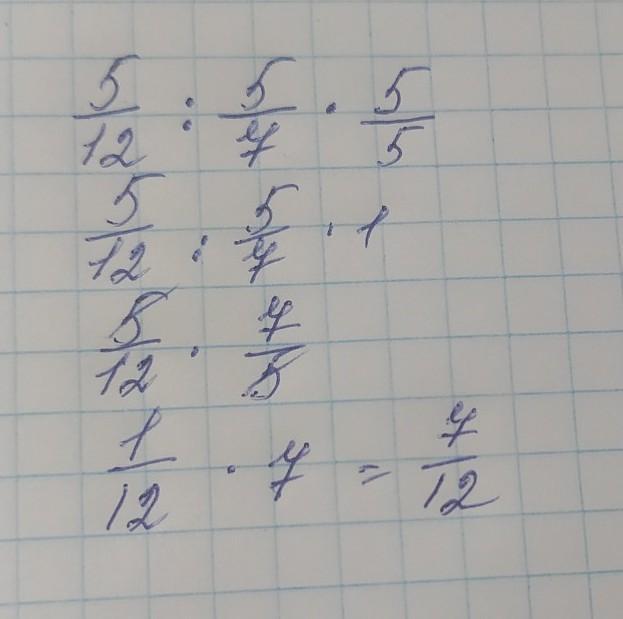 5/12 : 5/7 · 5/5
5/12 : 5/7 · 1
5/12 · 7/5
1/12 · 7 = 7/12